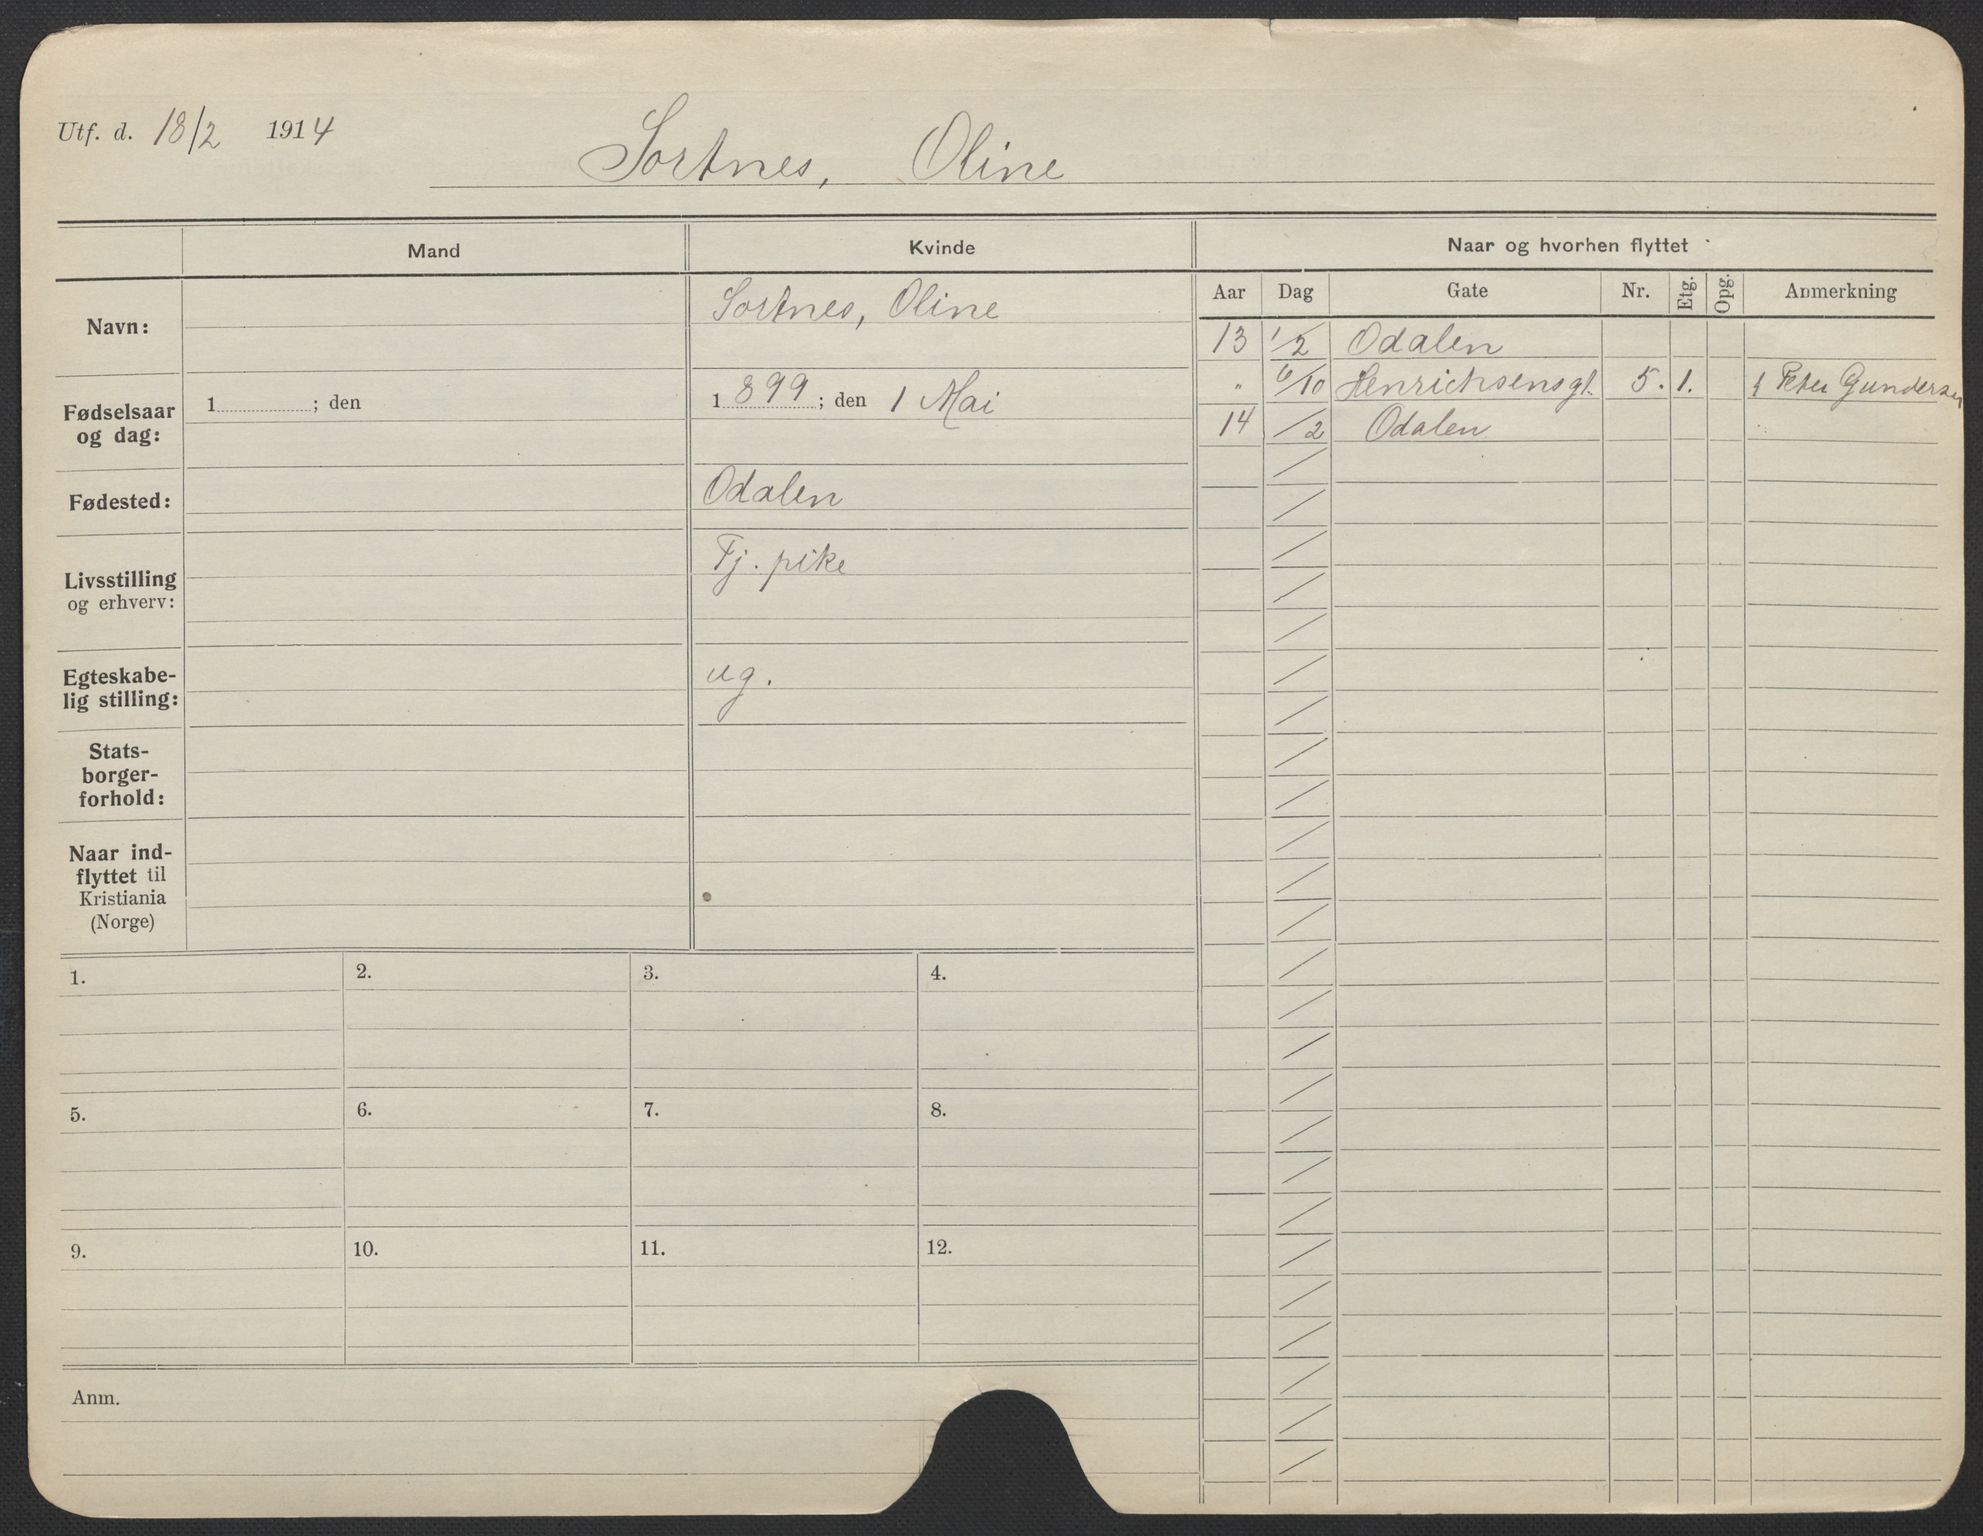 Utf. d. 18/2 1914
Sortnes, Oline
Mand
Kvinde
Naar og hvorhen flyttet
Aar Dag Gate Nr. Etg. Opg. Anmerkning
Navn:
Sortnes, Oline
13 1/2 Odalen
" 6/10 Henrichsensgt. 5. 1. Peter Gundersen
14 /2 Odalen
Fødselsaar
og dag:
1 ; den
1899; den 1 Mai
Fødested:
Odalen
Livsstilling
og erhverv:
Tj. pike
Egteskabe-
lig stilling:
ug.
Stats-
borger-
forhold:
Naar ind-
flyttet til
Kristiania
(Norge)
1. 2. 3. 4.
5. 6. 7. 8.
9. 10. 11. 12.
Anm.